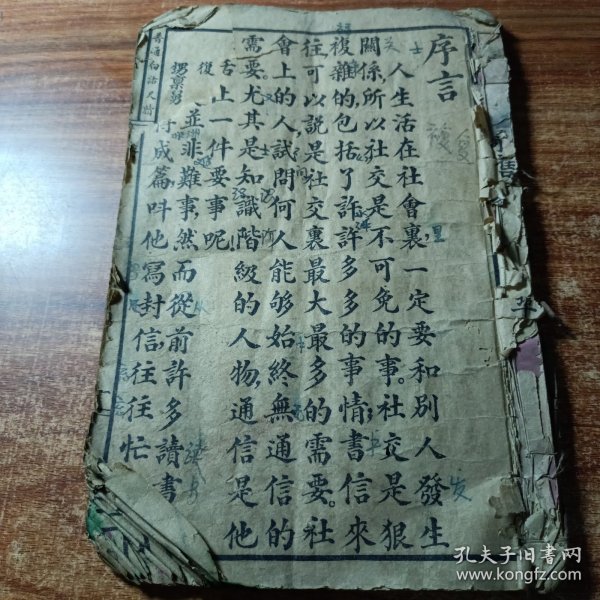 序言
人生活在社會裏，一定要和別人發生
關係，所以社交是不可免的事。社交是狠
複雜的，包括了許許多多的事情；書信來
往，可以說是社交裏最大最多的需要。社
會上的人，試問何人能够始終無通信的
需要？尤其是知識階級的人物，通信是他
舌止一件要事呢！
並非難事，然而從前許多讀書
成篇，呌他寫封信，往往忙
普通白話尺牘
士
关
复
里
发
孔夫子旧书网
www.kongfz.com